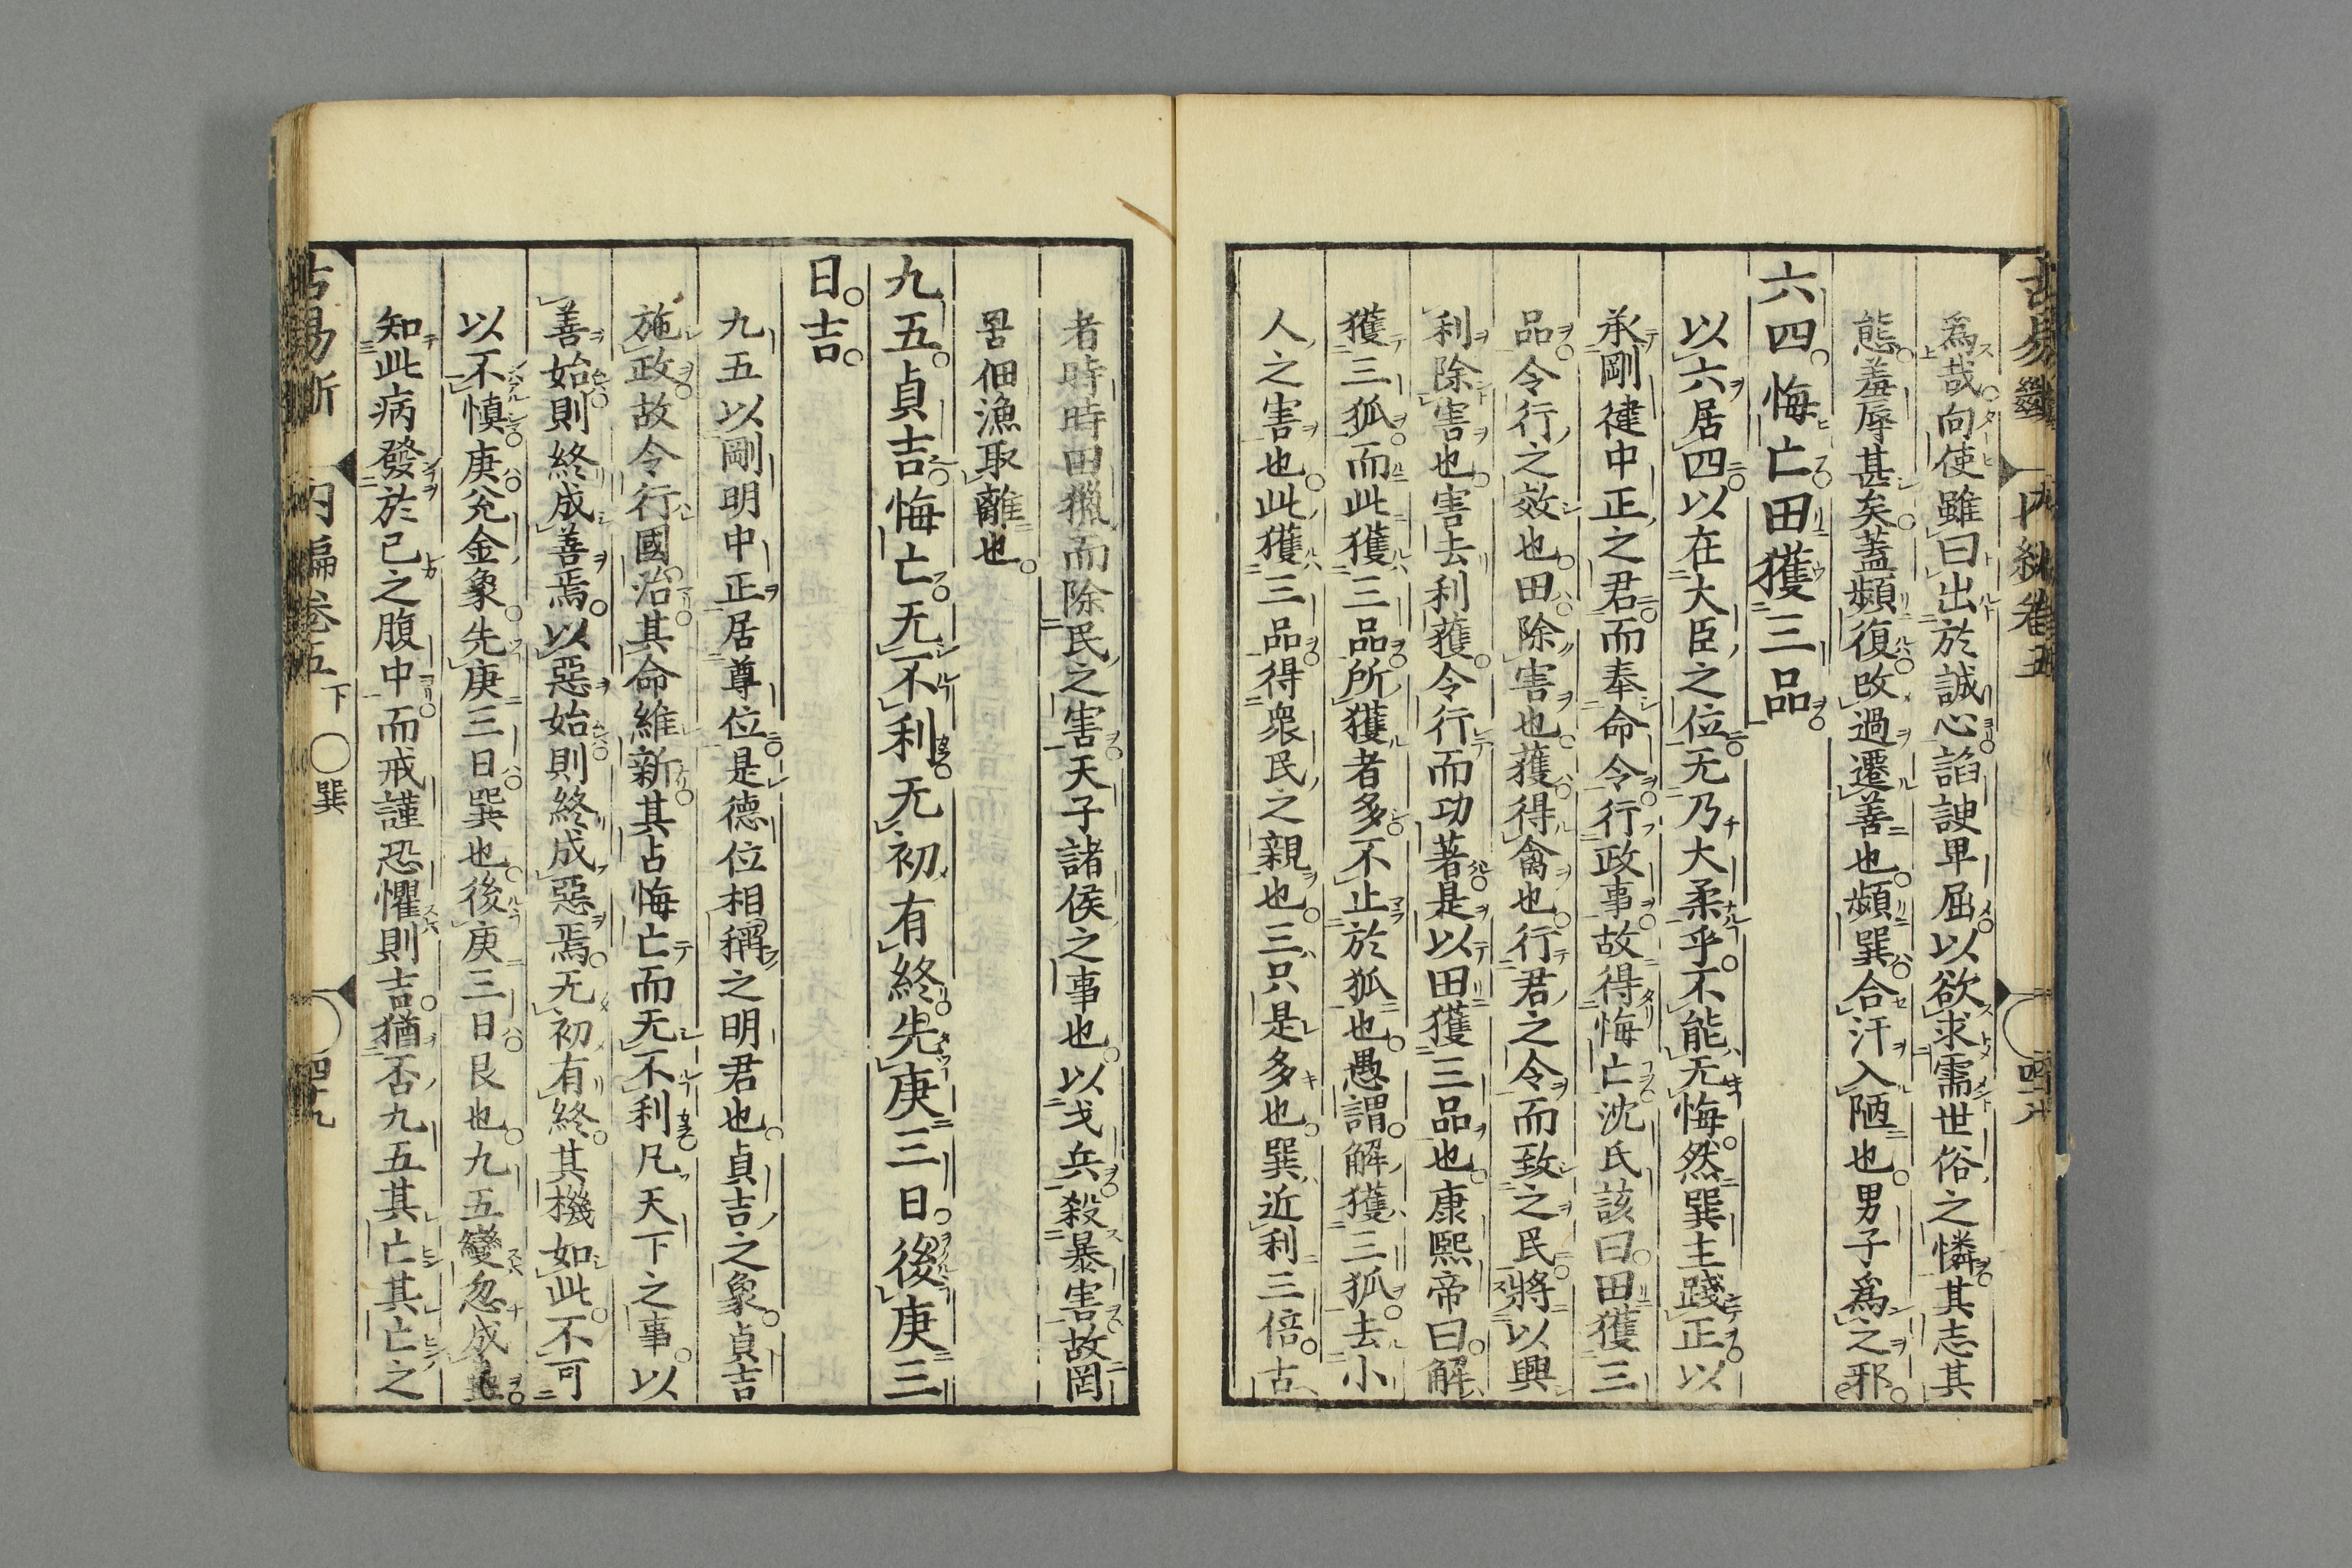 爲哉向使雖曰出於誠心諂諛卑屈以欲求需世俗之憐其志其
態羞辱甚矣蓋頻復改過遷善也頻巽合汗入陋也男子爲之邪
六四悔亡田獲三品
以六居四以在大臣之位无乃大柔乎不能无悔然巽主踐正以
承剛健中正之君而奉命令行政事故得悔亡沈氏該曰田獲三
品令行之效也田除害也獲得禽也行君之令而致之民將以興
利除害也害去利獲令行而功著是以田獲三品也康熙帝曰解
獲三狐而此獲三品所獲者多不止於狐也愚謂解獲三狐去小
人之害也此獲三品得衆民之親也三只是多也巽近利三倍古
者時時田獵而除民之害天子諸侯之事也以戈兵殺暴害故罔
罟佃漁取離也
九五貞吉悔亡无不利无初有終先庚三日後庚三
日吉
九五以剛明中正居尊位是德位相稱之明君也貞吉之象貞吉
施政故令行國治其命維新其占悔亡而无不利凡天下之事以
善始則終成善焉以惡始則終成惡焉无初有終其機如此不可
以不愼庚兊金象先庚三日巽也後庚三日艮也九五變忽成蠱
知此病發於己之腹中而戒謹恐懼則吉猶否九五其亡其亡之
古易斷 內編卷五下 ○巽 四十九